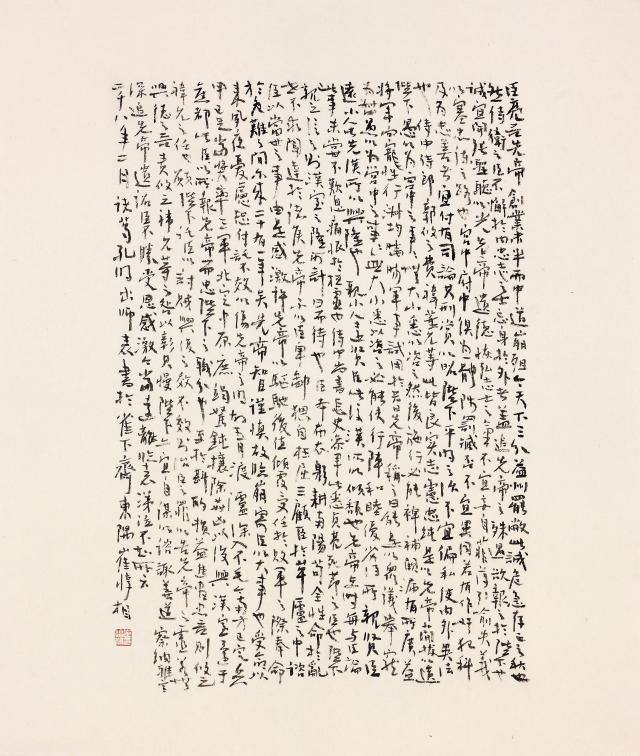 臣亮言先帝創業未半而中道崩殂今天下三分益州罷敝此誠危急存亡之秋也
然侍衛之臣不懈於內忠志之士忘身於外者蓋追先帝之殊遇欲報之於陛下也
誠宜開張聖聽以光先帝遺德恢弘志士之氣不宜妄自菲薄引喻失義
以塞忠諫之路也宮中府中俱為一體陟罰臧否不宜異同若有作奸犯科
及為忠善者宜付有司論其刑賞以昭陛下平明之治不宜偏私使內外異法
也侍中侍郎郭攸之費禕董允等此皆良實志慮忠純是以先帝簡拔以遺
陛下愚以為宮中之事事無大小悉以咨之然後施行必能裨補闕漏有所廣益
將軍向寵性行淑均曉暢軍事試用於昔日先帝稱之曰能是以眾議舉寵
為督愚以為營中之事事無大小悉以咨之必能使行陣和睦優劣得所親賢臣
遠小人此先漢所以興隆也親小人遠賢臣此後漢所以傾頹也先帝在時每與臣論
此事未嘗不歎息痛恨於桓靈也侍中尚書長史參軍此悉貞亮死節之臣也陛下
親之信之則漢室之隆可計日而待也臣本布衣躬耕南陽苟全性命於亂
世不求聞達於諸侯先帝不以臣卑鄙猥自枉屈三顧臣於草廬之中諮
臣以當世之事由是感激許先帝以驅馳後值傾覆受任於敗軍之際奉命
於危難之間爾來二十有一年矣先帝知臣謹慎故臨崩寄臣以大事也受命以
來夙夜憂慮恐付託不效以傷先帝之明故五月渡瀘深入不毛今南方已定兵
甲已足當獎率三軍北定中原庶竭駑鈍攘除奸凶以復興漢室還於
舊都此臣所以報先帝而忠陛下之職分也至於斟酌損益進盡忠言則攸之
禕允之任也願陛下託臣以討賊興復之效不效則治臣之罪以告先帝之靈若無
興德之言責攸之禕允等之咎以彰其慢陛下亦宜自謀以諮諏善道察納雅言
深追先帝遺詔臣不勝受恩感激今當遠離臨表涕泣不知所云
二十八年二月諸葛孔明出師表書於雀下齋東隅崔惇相